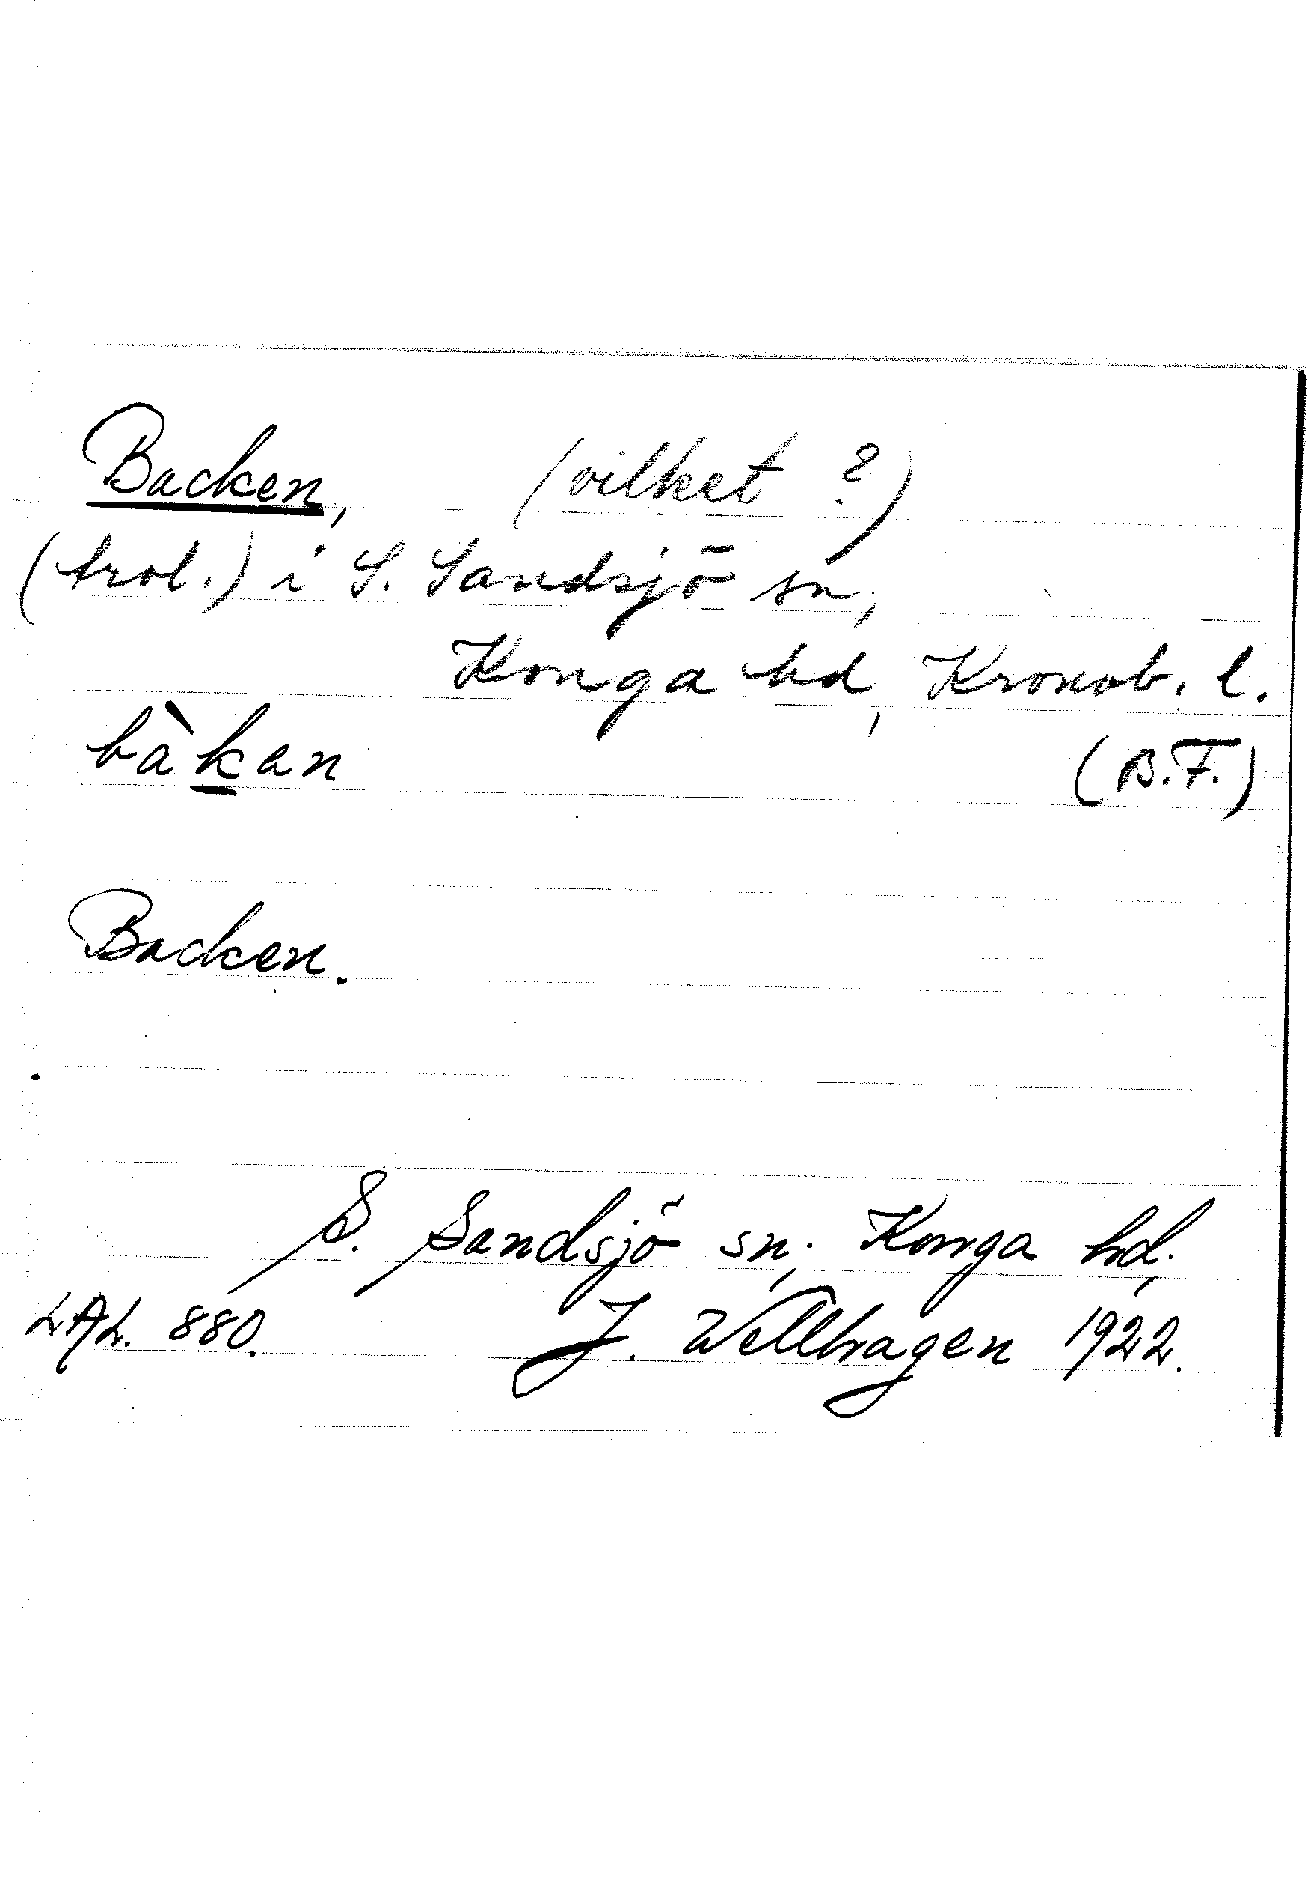 Backen, (vilket ?)
(trol.) i S. Sandsjö sn,
Konga hd, Kronob. l.
bàkan (B.F.)
Backen.
S. Sandsjö sn, Konga hd.
LAL. 880. J. Wellhagen 1922.